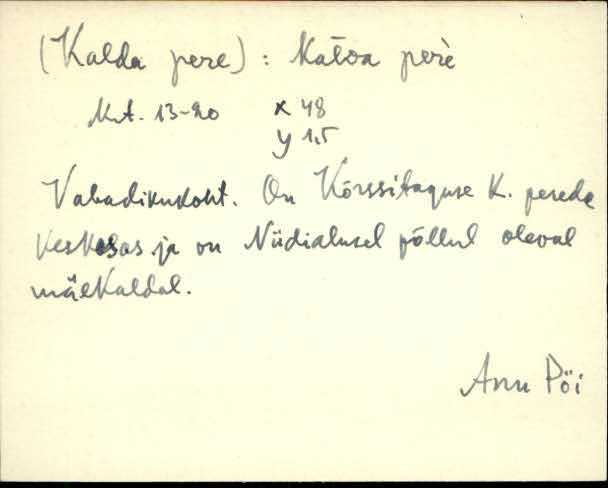 (Kalda pere) : Katoa perè
Mt. 13-20 x 48
y 1,5
Vabadikukoht. On Kõrssitaguse K. perede
keskosas ja on Niidialusel põllul oleval
mäekaldal.
Anu Pöi